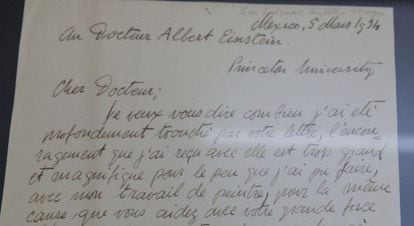 Mexico, 5 Mars 1934
au Docteur Albert Einstein.
Princeton University
Cher Docteur;
Je veux vous dire combien j'ai été
profondement touché par votre lettre, l'encou-
ragement que j'ai reçu avec elle est trop grand
et magnifique pour le peu que j'ai pu faire,
avec mon travail de peintre, pour la même
cause, que vous aidez avec votre grande force